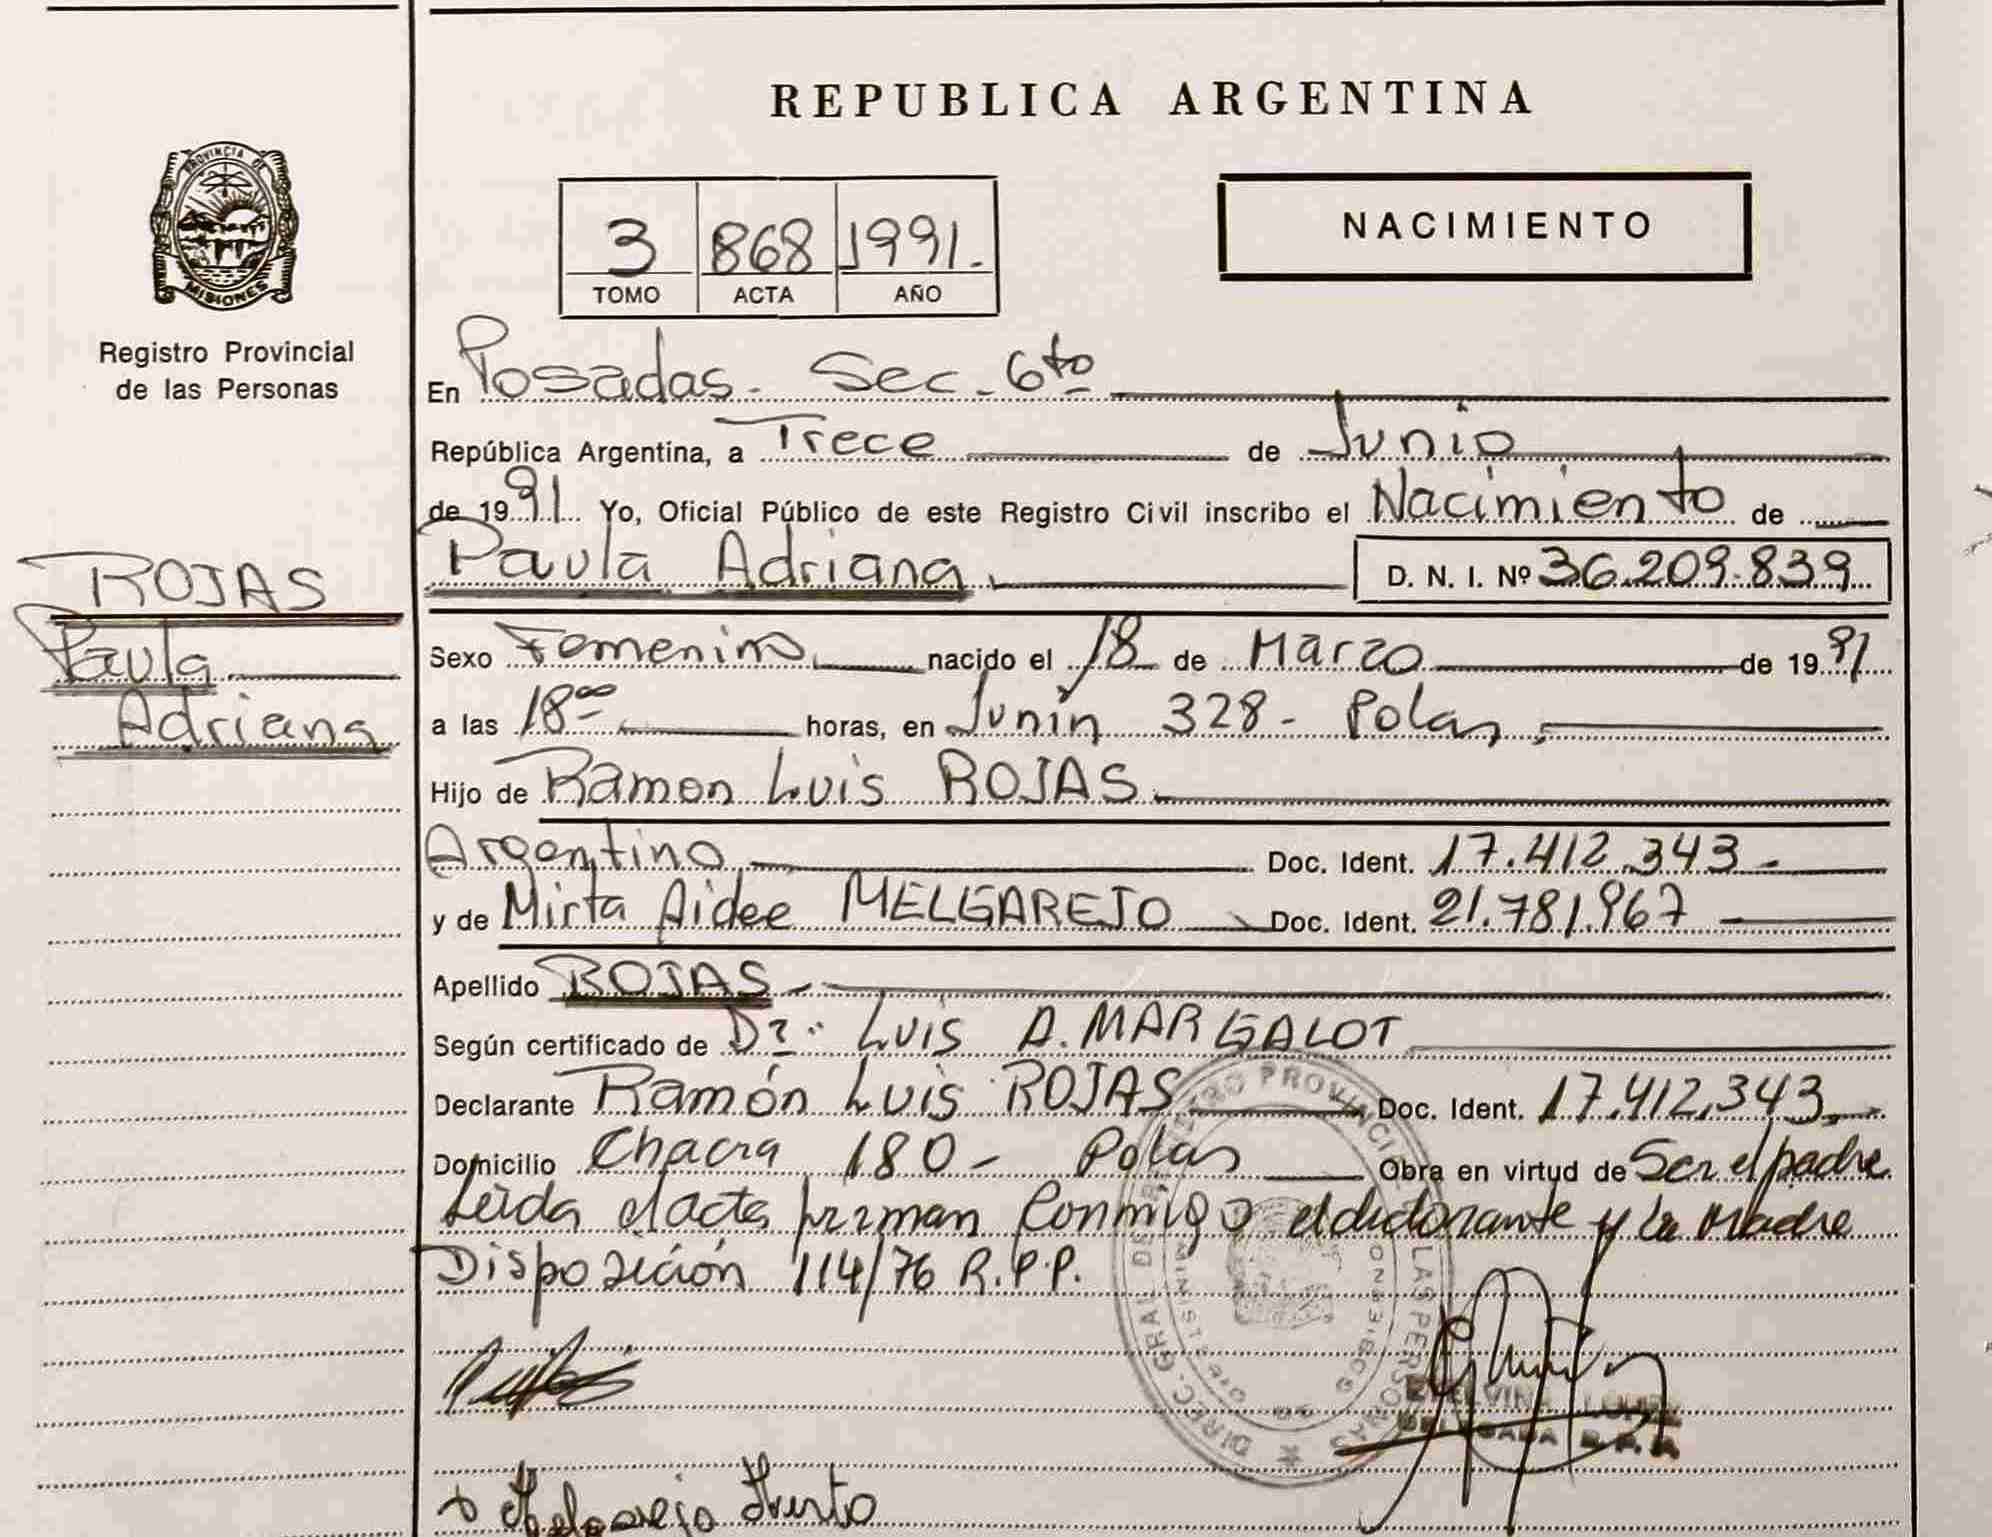 REPUBLICA ARGENTINA
PROVINCIA DE
MISIONES
Registro Provincial
de las Personas
3 868 1991.
TOMO ACTA AÑO
NACIMIENTO
En Posadas. Sec. 6to
República Argentina, a Trece de Junio
de 1991 Yo, Oficial Público de este Registro Civil inscribo el Nacimiento de
Paula Adriana. D. N. I. Nº 36.209.839
ROJAS
Paula
Adriana
Sexo Femenino nacido el 18 de Marzo de 1991
a las 18ºº horas, en Junín 328 - Pdas.
Hijo de Ramon Luis ROJAS.
Argentino Doc. Ident. 17.412.343 -
y de Mirta Aidee MELGAREJO Doc. Ident. 21.781.967 -
Apellido ROJAS -
Según certificado de Dr. Luis A. MARGALOT
Declarante Ramón Luis ROJAS Doc. Ident. 17.412.343.
Domicilio Chacra 180 - Pdas Obra en virtud de Ser el padre
Leida el acta firman conmigo el declarante y la Madre
Disposición 114/76 R.P.P.
DIREC. GRAL. DE REGISTRO PROVINCIAL LAS PERSONAS
Melgarejo Mirta